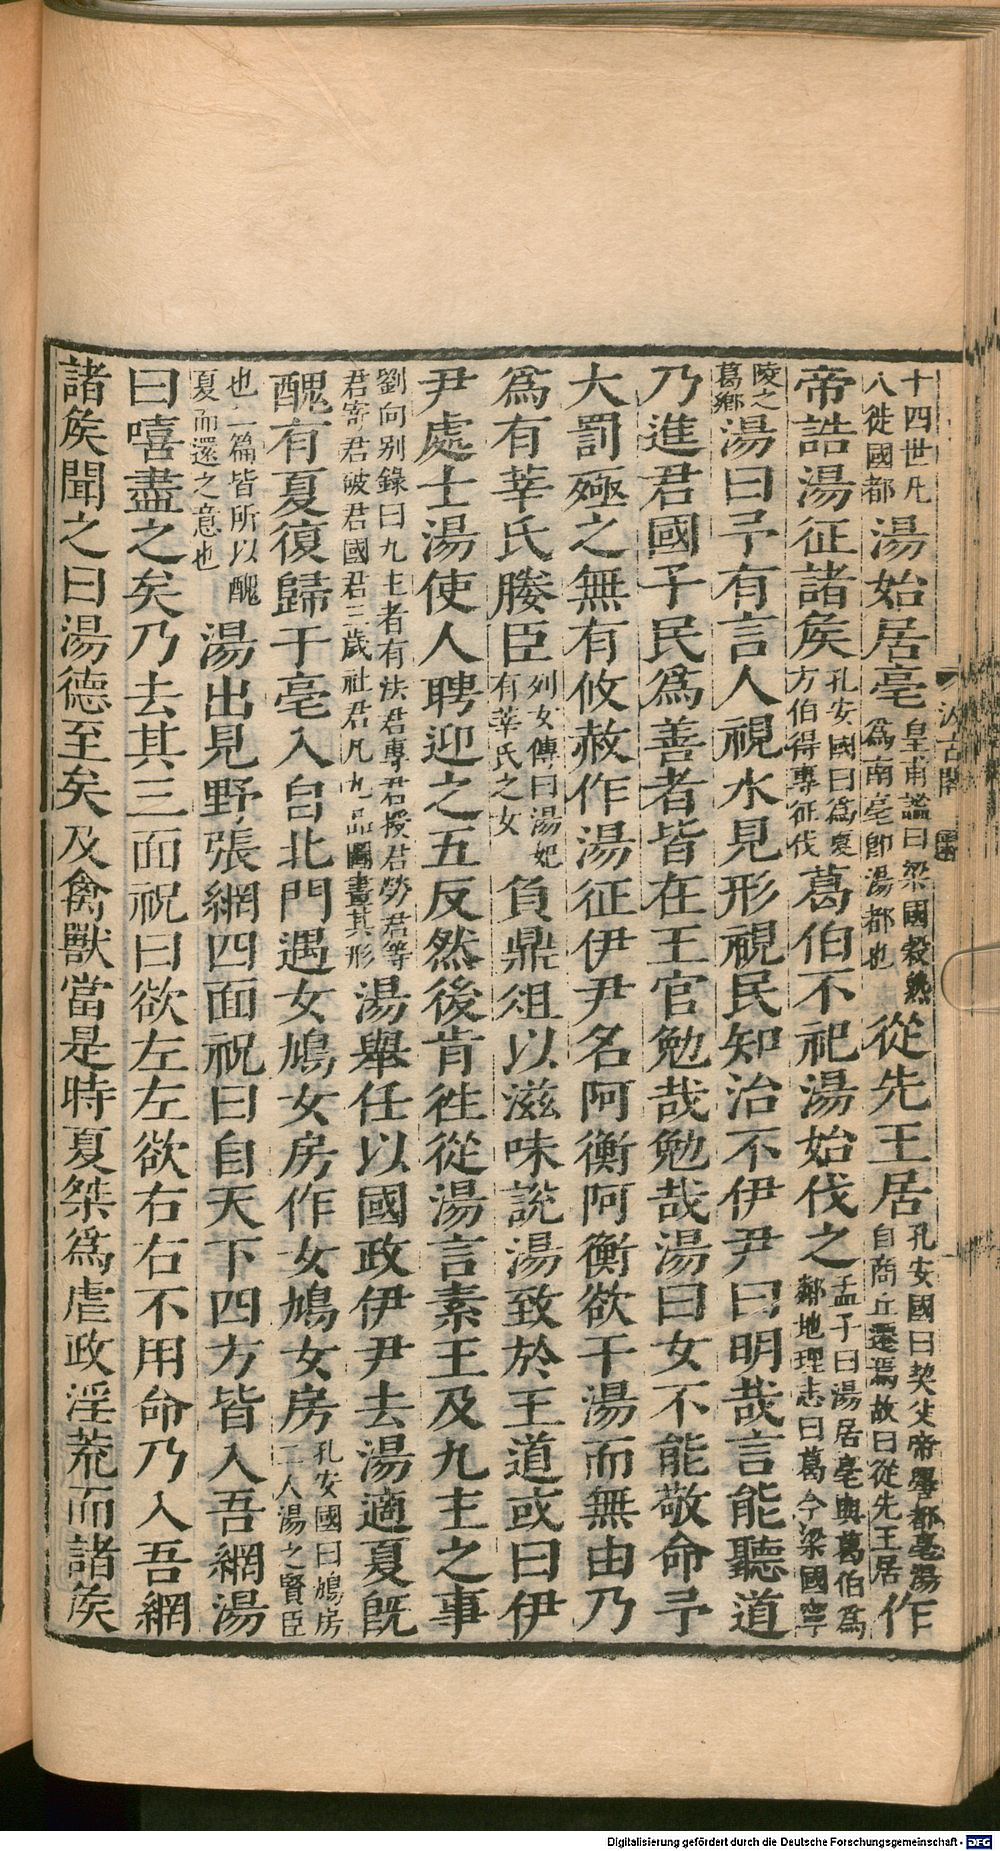 十四世凡八徙國都湯始居亳皇甫謐曰梁國穀熟為南亳即湯都也從先王居孔安國曰契父帝嚳都亳湯自商丘遷焉故曰從先王居作
帝誥湯征諸矦孔安國曰爲夏方伯得專征伐葛伯不祀湯始伐之孟子曰湯居亳與葛伯爲鄰地理志曰葛今梁國寧
陵之葛鄉湯曰予有言人視水見形視民知治不伊尹曰明哉言能聽道
乃進君國子民爲善者皆在王官勉哉勉哉湯曰女不能敬命予
大罰殛之無有攸赦作湯征伊尹名阿衡阿衡欲干湯而無由乃
爲有莘氏媵臣列女傳曰湯妃有莘氏之女負鼎俎以滋味說湯致於王道或曰伊
尹處士湯使人聘迎之五反然後肯徃從湯言素王及九主之事
劉向别錄曰九主者有法君專君授君勞君等君寄君破君國君三歲社君凡九品圖畫其形湯舉任以國政伊尹去湯適夏旣
醜有夏復歸于亳入自北門遇女鳩女房作女鳩女房孔安國曰鳩房二人湯之賢臣
也二篇皆所以醜夏而還之意也湯出見野張網四面祝曰自天下四方皆入吾網湯
曰嘻盡之矣乃去其三面祝曰欲左左欲右右不用命乃入吾網
諸矦聞之曰湯德至矣及禽獸當是時夏桀爲虐政淫荒而諸矦
汲古閣
Digitalisierung gefördert durch die Deutsche Forschungsgemeinschaft - DFG